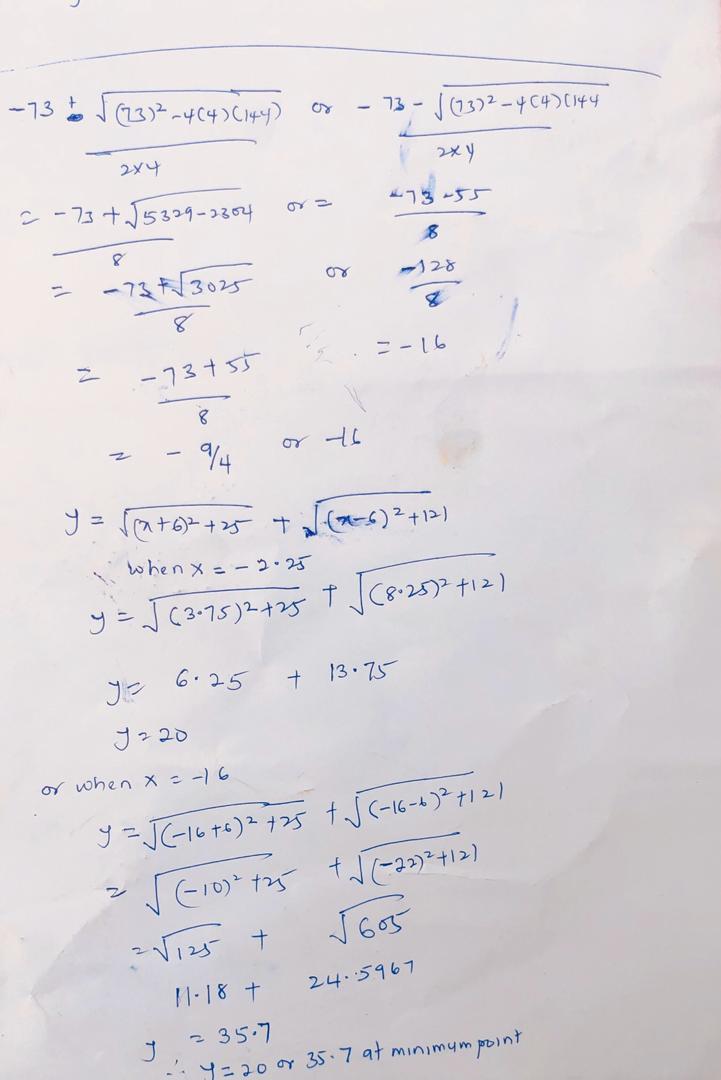 -73 ± √((73)² -4(4)(144)) / 2×4 or - 73 - √((73)² -4(4)(144 / 2×4
= -73 + √5329-2304 / 8 or = -73 -55 / 8
= -73 + √3025 / 8 or -128 / 8
= -73 + 55 / 8 = -16
= - 9/4 or -16
y = √(x+6)² +25 + √(x-6)² +121
when x = - 2.25
y = √(3.75)² +25 + √(8.25)² +121
y = 6.25 + 13.75
y = 20
or when x = -16
y = √(-16+6)² +25 + √(-16-6)² +121
= √(-10)² +25 + √(-22)² +121
= √125 + √605
11.18 + 24.5967
y = 35.7
∴ y = 20 or 35.7 at minimum point